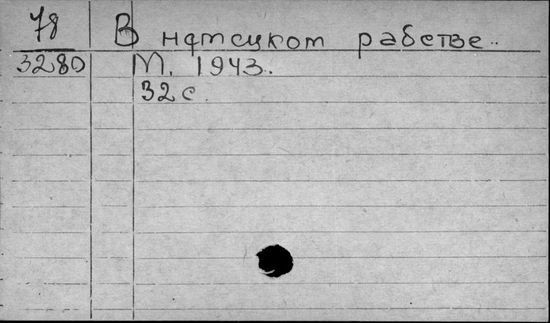 78
3280
В натецком рабстве..
М. 1943.
32 с.